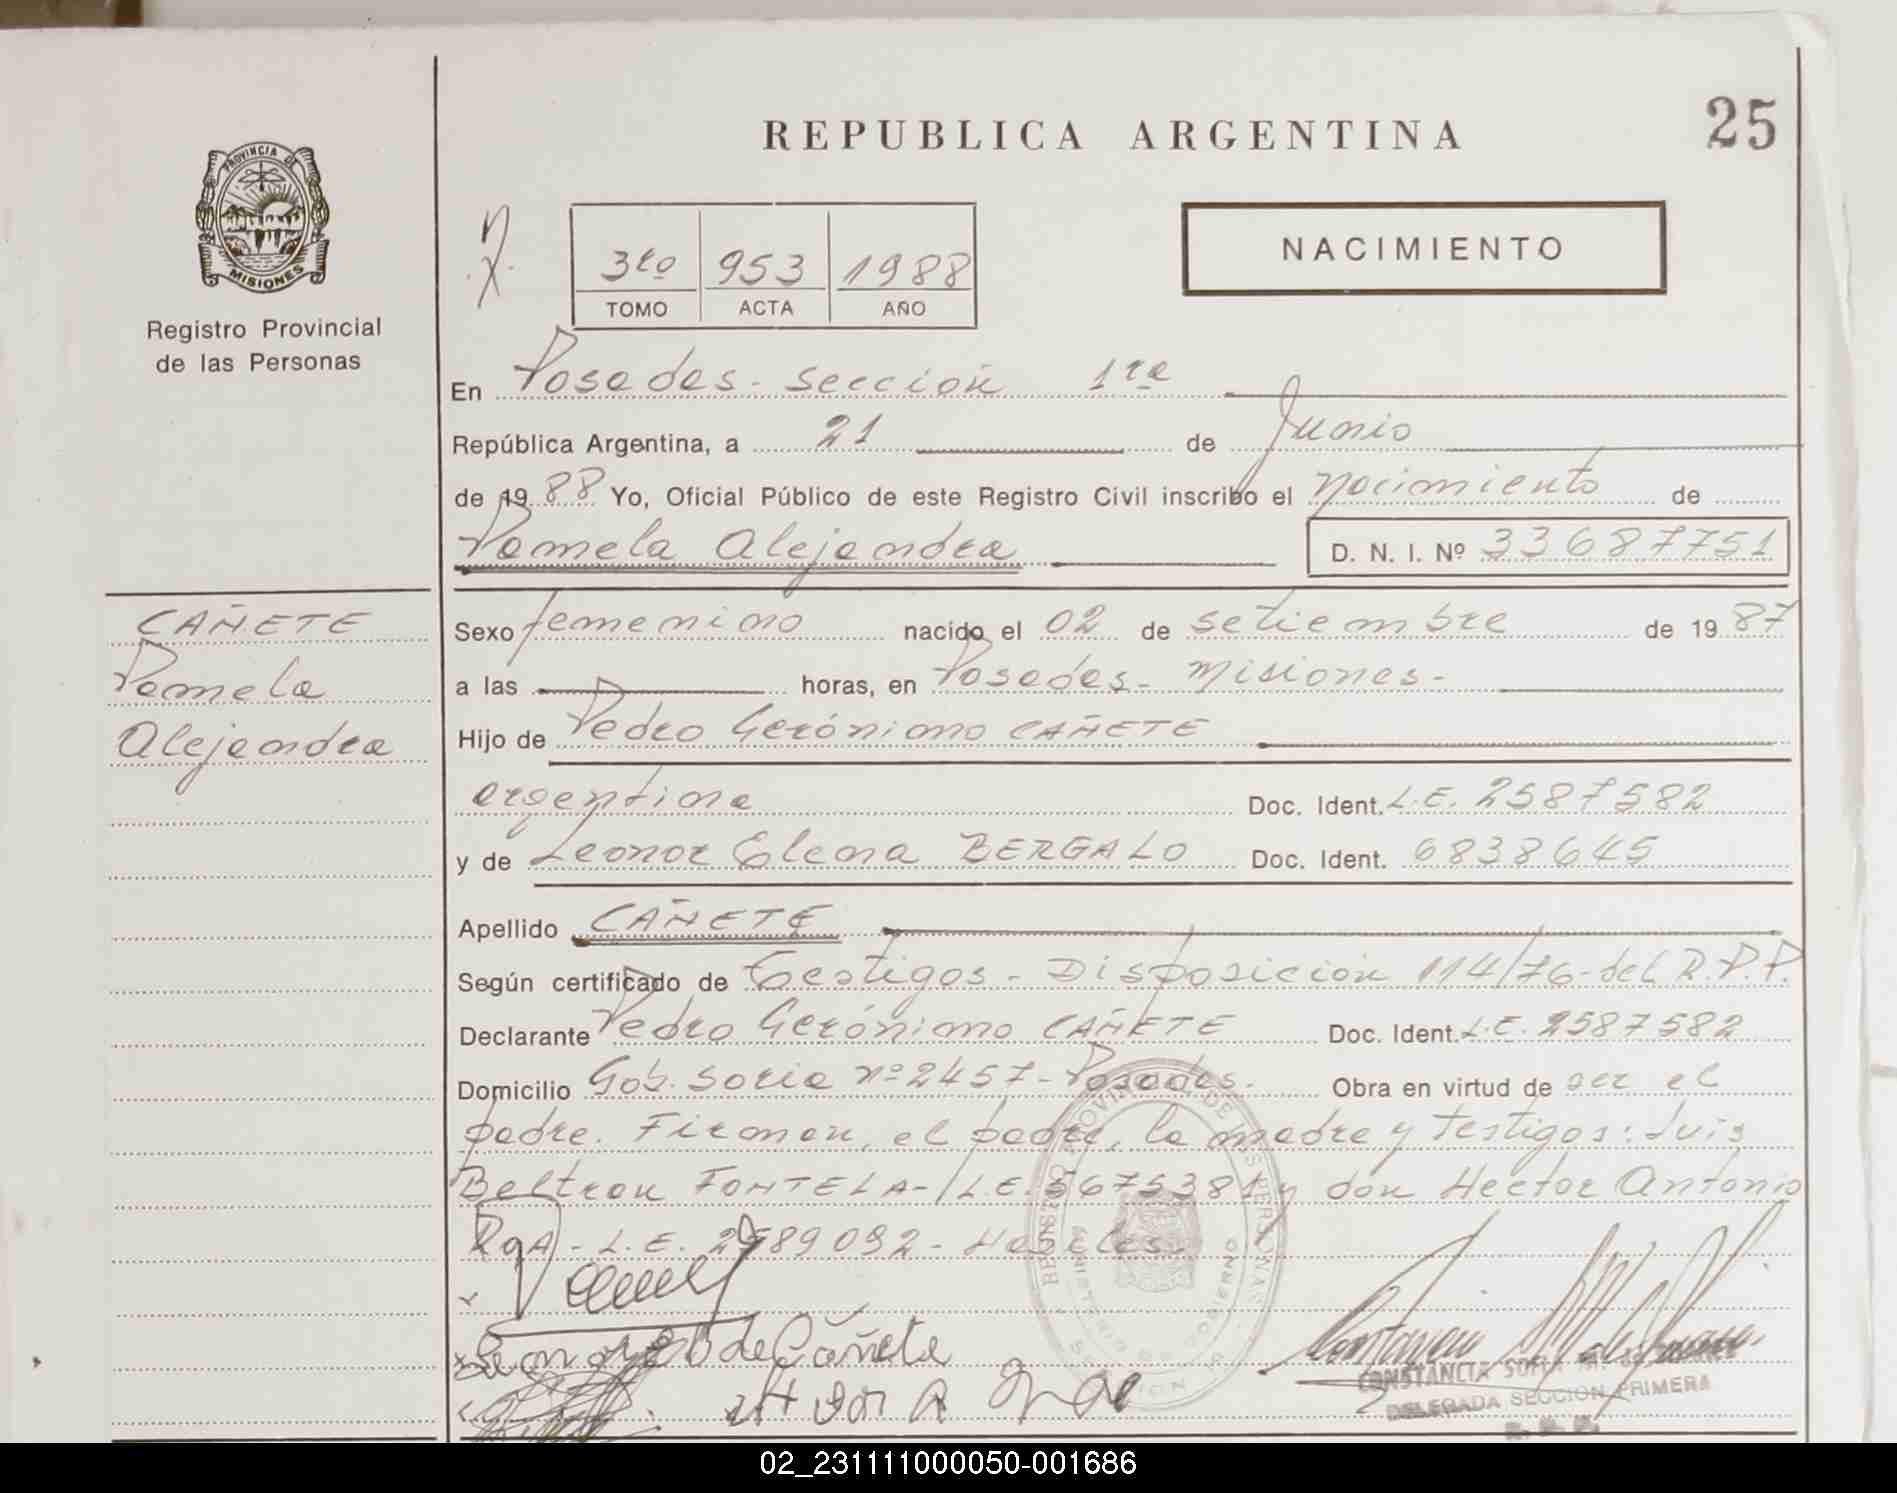 25
REPUBLICA ARGENTINA
PROVINCIA DE
MISIONES
Registro Provincial
de las Personas
NACIMIENTO
3to 953 1988
TOMO ACTA AÑO
En Posadas - sección 1ra
República Argentina, a 21 de Junio
de 1988 Yo, Oficial Público de este Registro Civil inscribo el nacimiento de
Pamela Alejandra D. N. I. Nº 33687751
CAÑETE
Pamela
Alejandra
Sexo femenino nacido el 02 de setiembre de 1987
a las horas, en Posadas - Misiones -
Hijo de Pedro Gerónimo CAÑETE
argentina Doc. Ident. L.E. 2587582
y de Leonor Elena BERGALO Doc. Ident. 6838645
Apellido CAÑETE
Según certificado de Testigos - Disposición 114/76 - del R.P.P.
Declarante Pedro Gerónimo CAÑETE Doc. Ident. L.E. 2587582
Domicilio Gob. Soria nº 2457 - Posadas. Obra en virtud de ser el
padre. Firman, el padre, la madre y testigos: Luis
Beltran FONTELA - L.E. 5675381 y don Hector Antonio
- L.E. 2589092 - Habiles.
REGISTRO PROVINCIAL DE LAS PERSONAS
MINISTERIO DE GOBIERNO
SECCION 1a
de Cañete
CONSTANCIA SOFIA
DELEGADA SECCION PRIMERA
R. P. P.
02_231111000050-001686